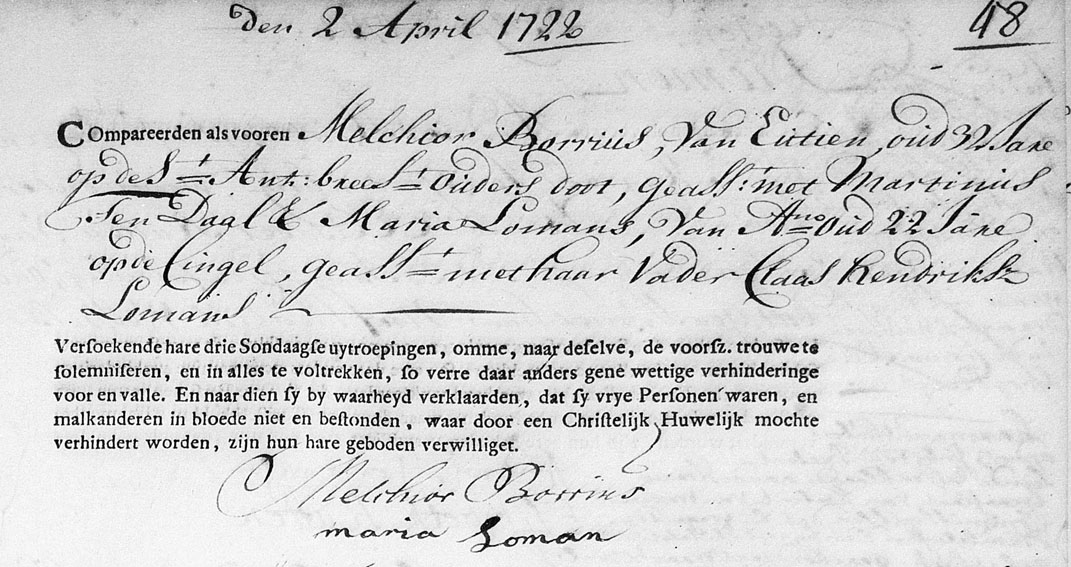 den 2 April 1722 48
COmpareerden als vooren Melchior Borrius, Van Eutien, oud 32 Jare
op de St= Ant: breest= Ouders doot, geasst: met Martinus
Ten Daal & Maria Lomans, Van Amo= Oud 22 Jare
op de Cingel, geasst= met haar Vader Claas Hendriksz
Lomans
Versoekende hare drie Sondaagse uytroepingen, omme, naar deselve, de voorsz. trouwe te
solemniseren, en in alles te voltrekken, so verre daar anders gene wettige verhinderinge
voor en valle. En naar dien sy by waarheyd verklaarden, dat sy vrye Personen waren, en
malkanderen in bloede niet en bestonden, waar door een Christelijk Huwelijk mochte
verhindert worden, zijn hun hare geboden verwilliget.
Melchior Borrius
maria Loman